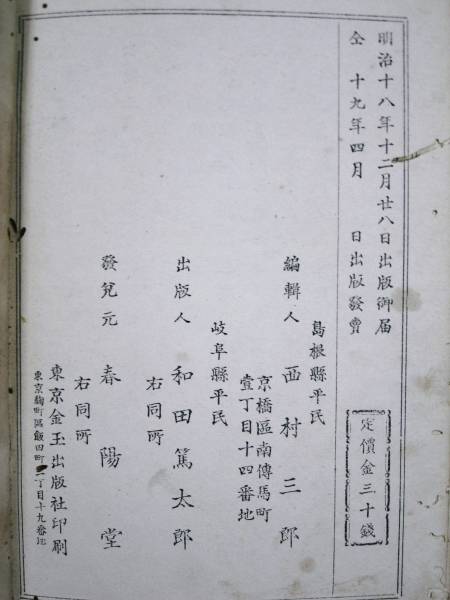 明治十八年十二月廿八日出版御届
仝 十九年四月 日出版發賣
定價金三十錢
島根縣平民
編輯人 西村三郎
京橋區南傳馬町
壹丁目十四番地
岐阜縣平民
出版人 和田篤太郎
右同所
發兌元 春陽堂
右同所
東京金玉出版社印刷
東京麴町區飯田町二丁目十九番地